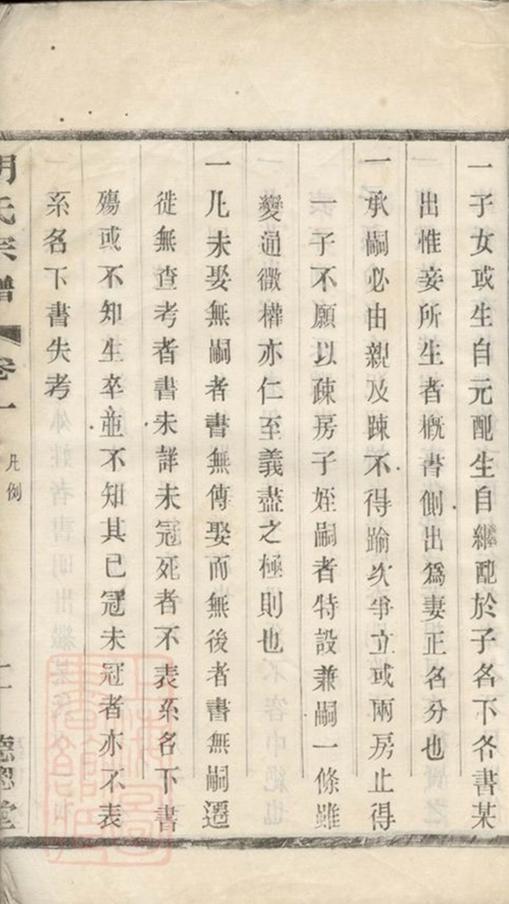 一子女或生自元配生自繼配於子名下各書某
出惟妾所生者概書側出爲妻正名分也
一承嗣必由親及踈不得踰次爭立或兩房止得
一子不願以踈房子姪嗣者特設兼嗣一條雖
變通微權亦仁至義盡之極則也
一凡未娶無嗣者書無傳娶而無後者書無嗣遷
徙無查考者書未詳未冠死者不表系名下書
殤或不知生卒並不知其已冠未冠者亦不表
系名下書失考
氏宗譜 卷一 凡例 德聰堂